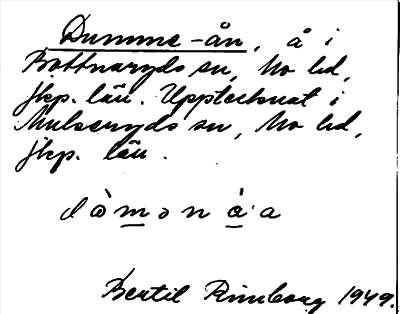 Dumme-ån, å i
Bottnaryds sn, Mo hd,
Jkp. län. Upptecknat i
Mulseryds sn, Mo hd,
Jkp. län.
dòmonàa
Bertil Rimborg 1949.